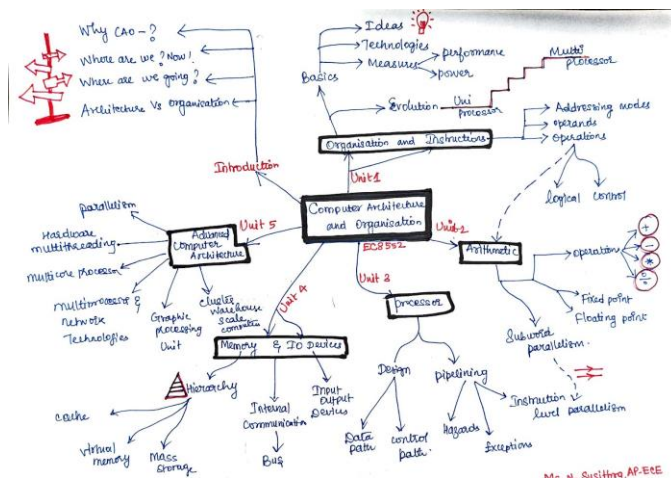 Why CAO-?
Where are we? Now!
Where are we going?
Architecture Vs Organisation
Introduction
Ideas
Technologies
Measures
performance
power
Basics
Evolution
Uni
Processor
Multi
processor
Organisation and Instructions
Addressing modes
operands
operations
logical
control
Unit 1
Computer Architecture
and Organisation
EC8552
Unit 2
Arithmetic
operation
+
-
*
÷
Fixed point
Floating point
Subword
parallelism.
Instruction
level parallelism
Unit 3
processor
Design
Data
path
control
path.
pipelining
Hazards
Exceptions
Unit 4
Memory & IO Devices
Hierarchy
cache
virtual
memory
Mass
storage
Internal
Communication
Bus
Input
Output
Devices
Unit 5
Advanced
Computer
Architecture
parallelism
Hardware
multithreading
multicore processor
multiprocessor &
network
Technologies
Graphic
processing
Unit
Cluster
Warehouse
scale
computers
N. Susithra, AP-ECE